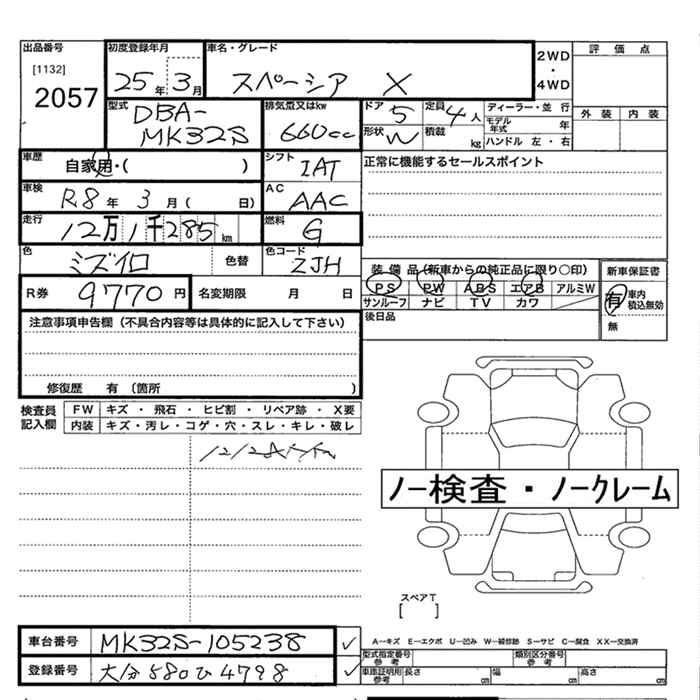 出品番号 初度登録年月 車名・グレード 2WD・4WD 評価点
[1132]
2057 25年3月 スペーシア X
型式 DBA-MK32S 排気量又はkw 660cc ドア 5 定員 4人 ディーラー・並行 外装 内装
形状 W 積載 kg モデル年式 年
ハンドル 左・右
車歴 自家用・( ) シフト IAT 正常に機能するセールスポイント
車検 R8年3月( 日) AC AAC
走行 12万1千285km 燃料 G
色 ミズイロ 色替 色コード ZJH
装備品(新車からの純正品に限り○印) 新車保証書
PS PW ABS エアB アルミW 有 車内積込無効
サンルーフ ナビ TV カワ 無
R券 9770円 名変期限 月 日
後日品
注意事項申告欄(不具合内容等は具体的に記入して下さい)
修復歴 有(箇所 )
検査員記入欄 FW キズ・飛石・ヒビ割・リペア跡・X要
内装 キズ・汚レ・コゲ・穴・スレ・キレ・破レ
ノー検査・ノークレーム
スペアT
[ ]
車台番号 MK32S-105238
A―キズ E―エクボ U―凹み W―補修跡 S―サビ C―腐食 XX―交換済
型式指定番号 参考 類別区分番号 参考
登録番号 大分580ひ4798
車庫証明用参考 長さ cm 幅 cm 高さ cm